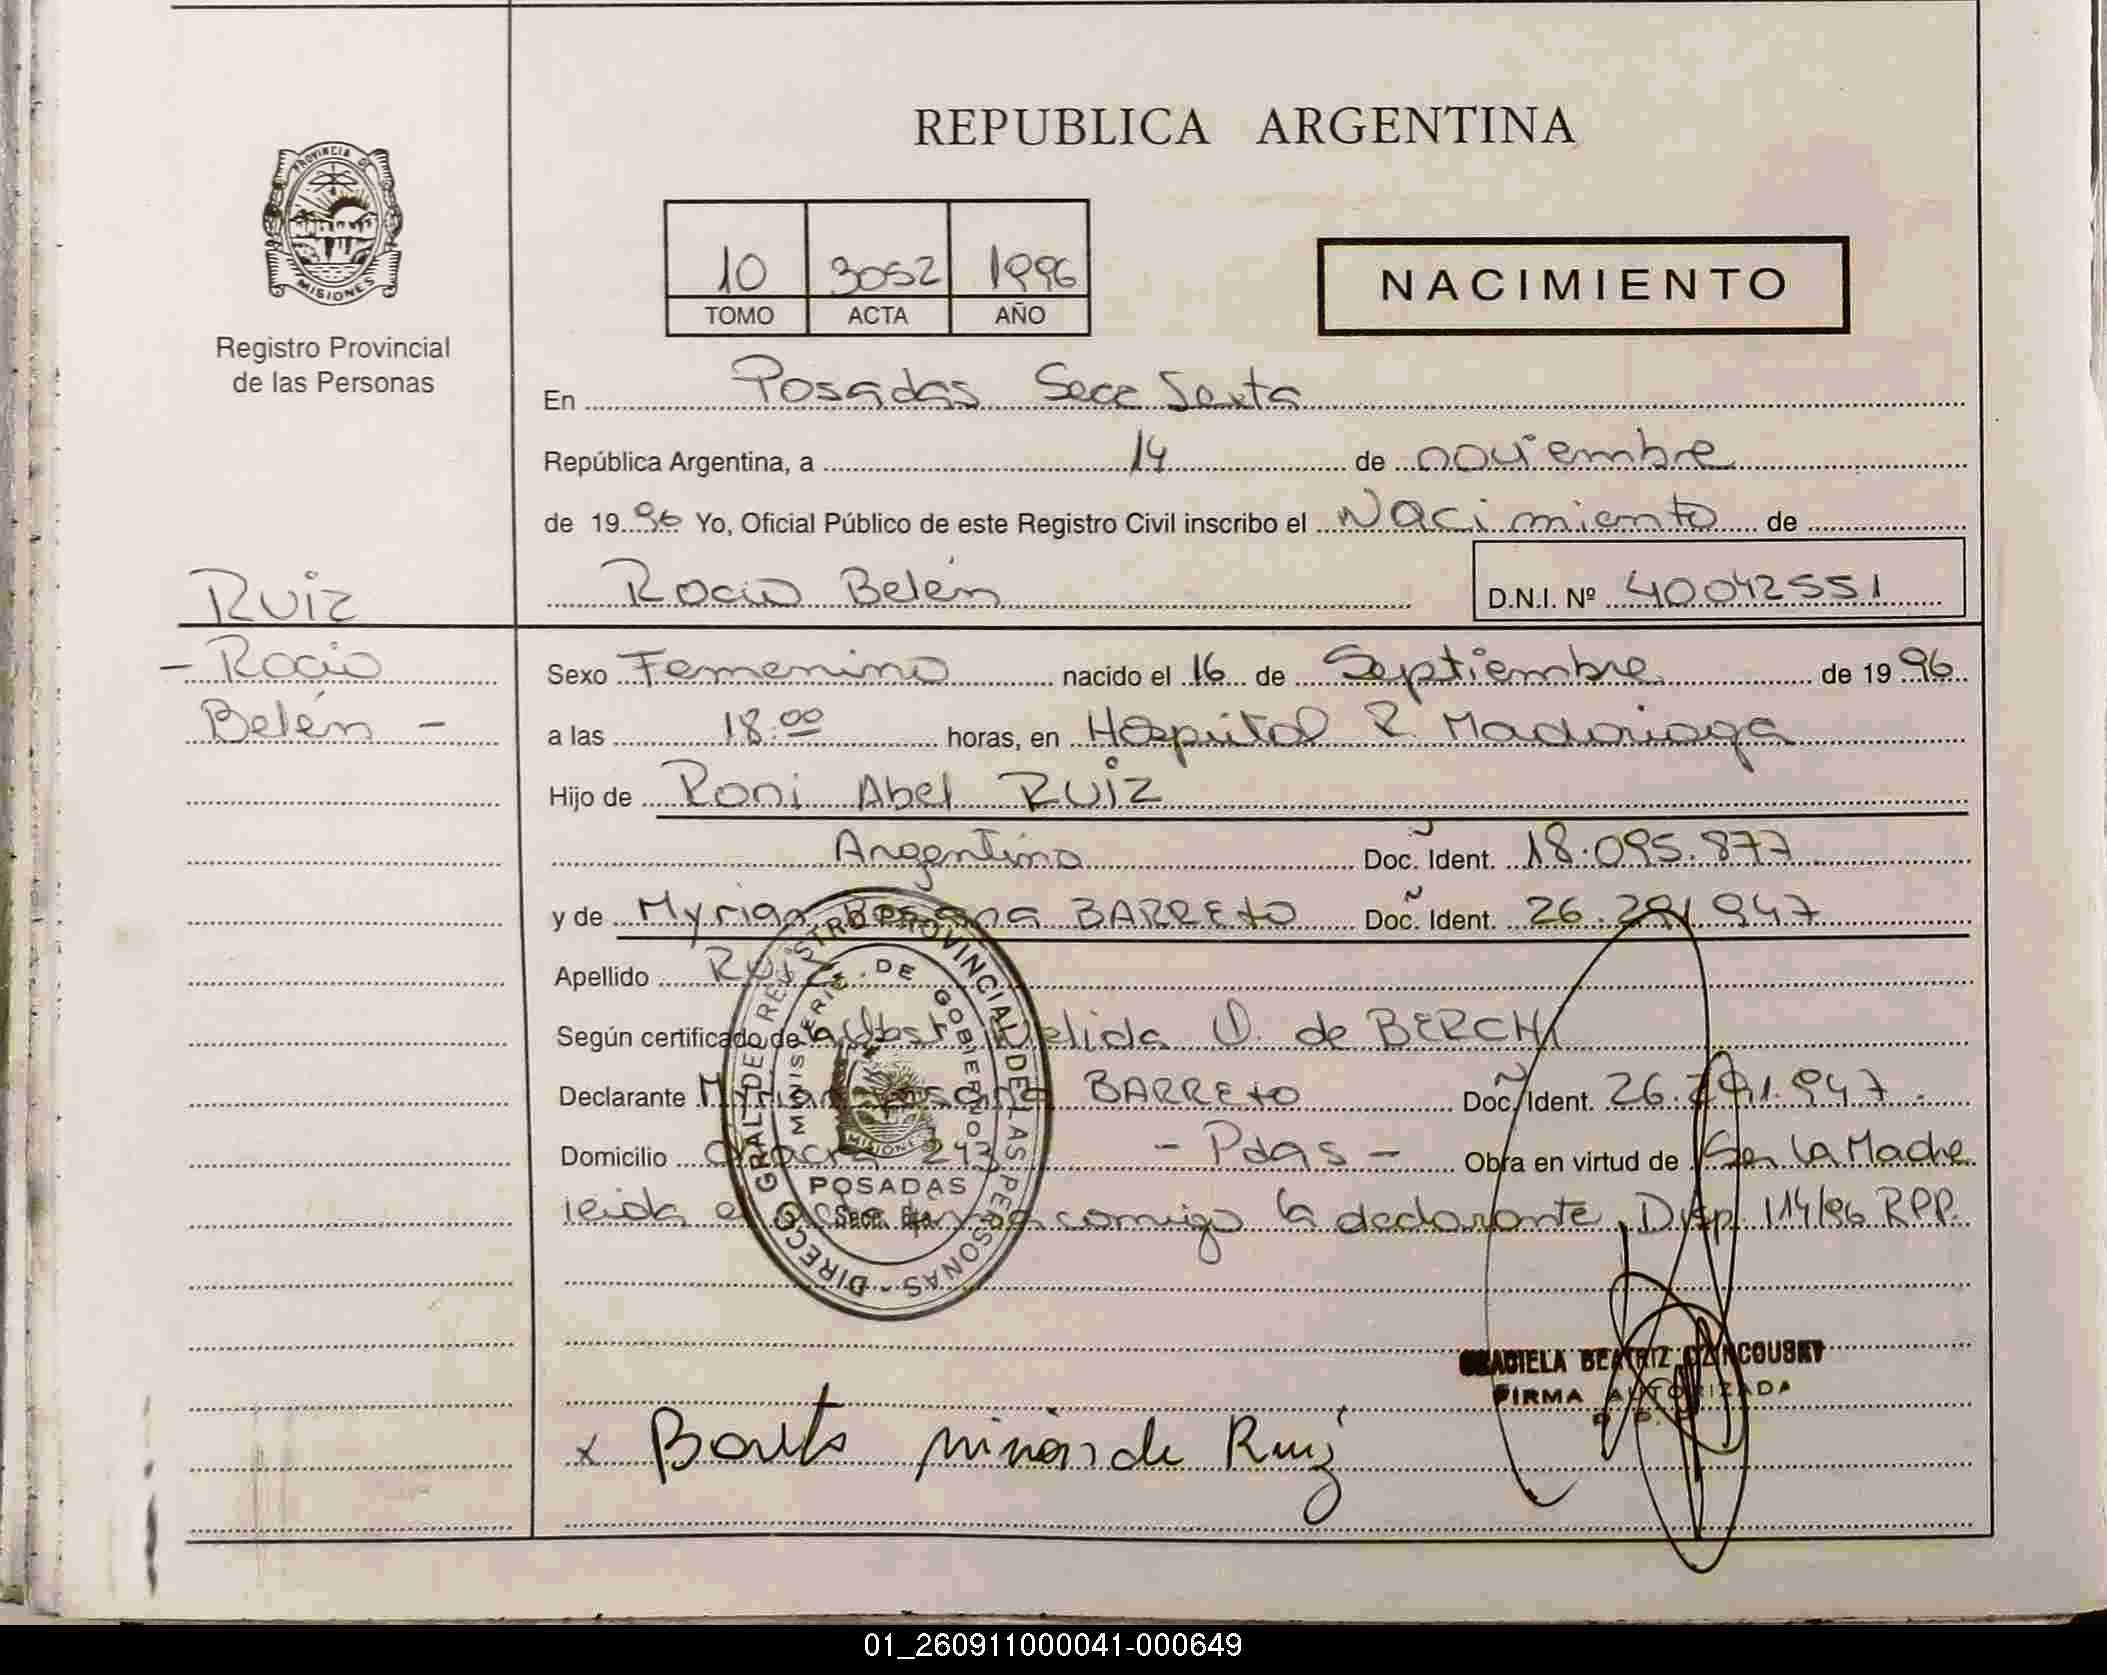 REPUBLICA ARGENTINA
PROVINCIA DE
MISIONES
Registro Provincial
de las Personas
10 3052 1996
TOMO ACTA AÑO
NACIMIENTO
En Posadas Secc Sexta
República Argentina, a 14 de noviembre
de 1996 Yo, Oficial Público de este Registro Civil inscribo el Nacimiento de
Rocio Belén D.N.I. Nº 40042551
RUIZ
- Rocio
Belén -
Sexo Femenino nacido el 16 de Septiembre de 1996
a las 18:00 horas, en Hospital R. Madariaga
Hijo de Roni Abel RUIZ
Argentino Doc. Ident. 18.095.877
y de Myrian BARRETO Doc. Ident. 26.291.947
Apellido Ruiz
Según certificado de la Obst. Nelida V. de BERCHI
Declarante Myrian BARRETO Doc. Ident. 26.291.947
Domicilio Chacra 243 - Pdas - Obra en virtud de Ser la Madre
leida el acta firma comigo la declarante, Disp. 114/96 RPP.
DIREC. GRAL DE REGISTRO PROVINCIAL DE LAS PERSONAS
MINISTERIO DE GOBIERNO
MISIONES
POSADAS
Secc. 6ta
GRACIELA BEATRIZ
FIRMA AUTORIZADA
x de Ruiz
01_260911000041-000649